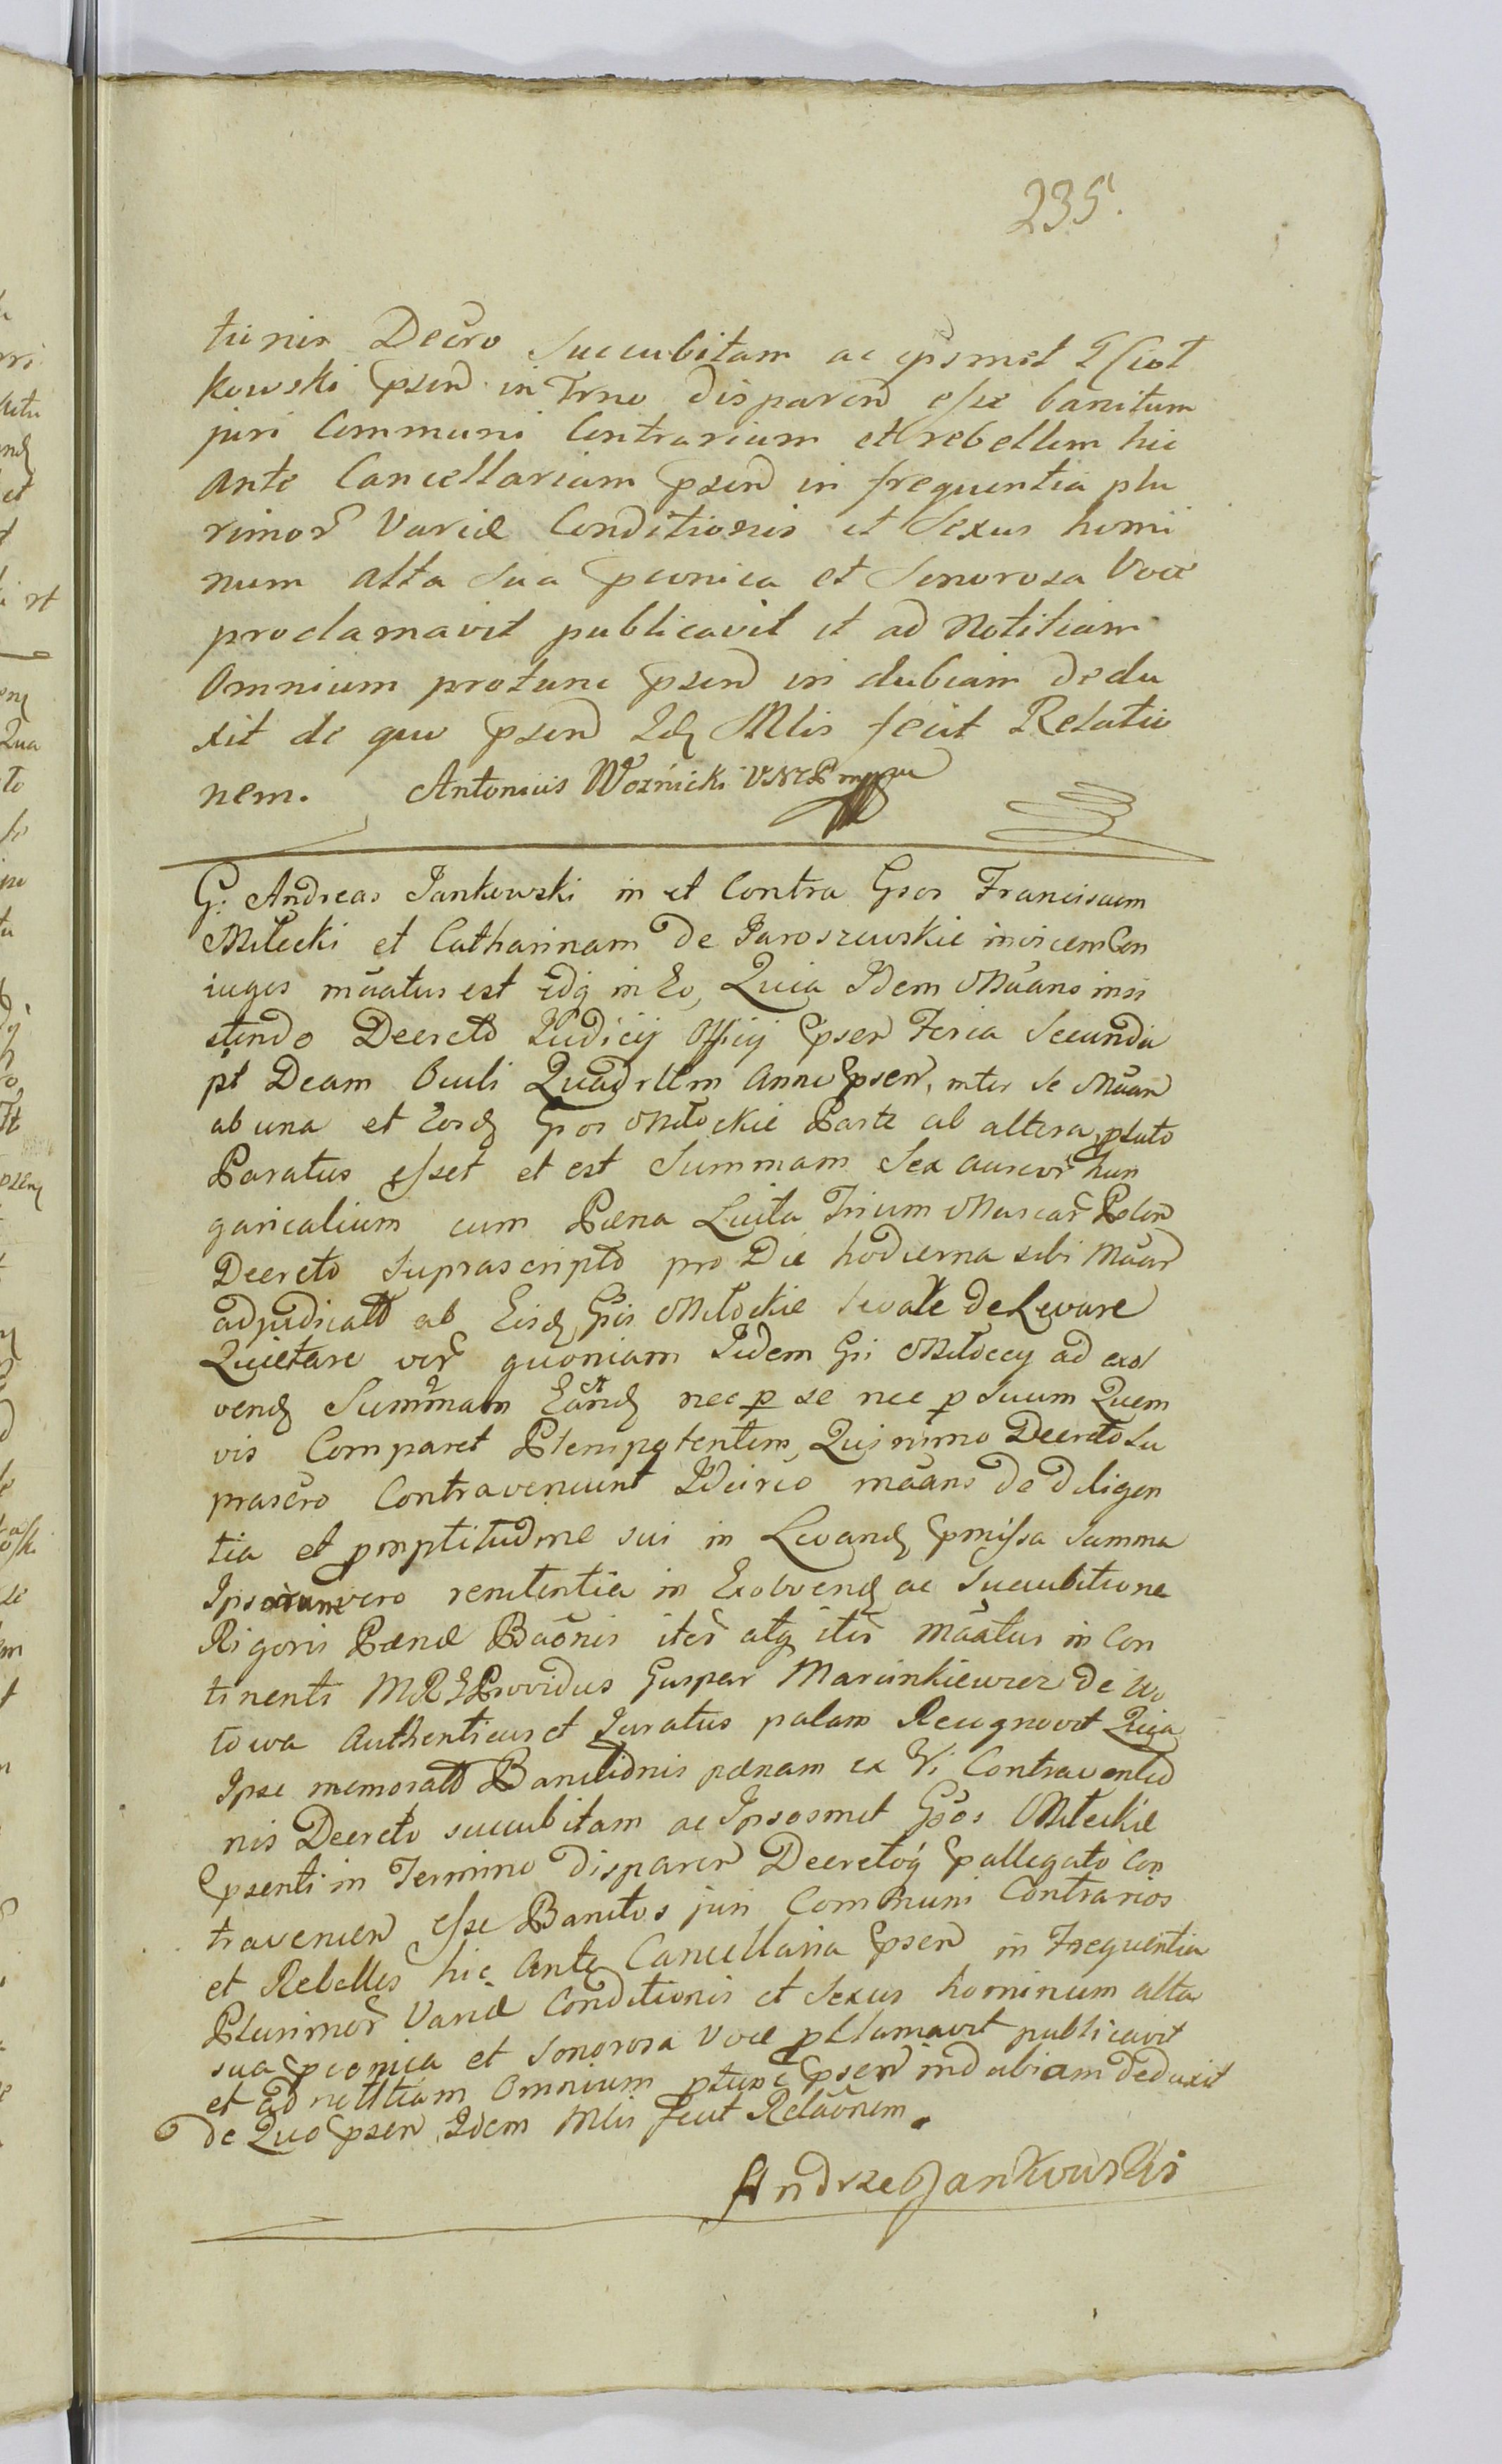 235.
tionis Decro succubitam ac ipsmet Gsiot
kowski psen in Trno disparen esse banitum
juri Communi Contrarium et rebellem hic
Ante Cancellariam psen in frequentia plu
rimor Variæ Conditionis et Sexus homi
num alta sua pconica et Sonorosa Voce
proclamavit publicavit et ad Notitiam
Omnium protunc psen in dubiam dedu
xit de quo psen Idq Mlis fecit Relatio
nem. Antonius Woźnicki VNREmppu
G. Andreas Jankowski in et Contra Gsos Franciscum
Miłocki et Catharinam de Jaroszewskie invicem Con
iuges māatus est idq in Eo, Quia Idem Māans insi
stendo Decreto Iudicij Officij psen Feria Secunda
pt Dcam Oculi Quadrllm Anni psen, inter se Māan
ab una et Eosq Gsos Miłockie Parte ab altera, plato
Paratus esset et est Summam Sex aureor hun
garicalium cum Pæna Luita Trium Marcar Polon
Decreto suprascripto pro Die hodierna sibi Māan
adjudicatt ab Eisq Gsis Miłockie levare De Levare
Quietare ver quoniam Iidem Gsi Miłoccy ad exol
venq Summam Eanq nec p se nec p suum Quem
vis Comparet Plenipotentem, Quinimo Decreto su
prascro Contraveniunt Idcirco māans de diligen
tia et pmptitudine sui in Levanq pmissa summa
Ipsorum vero renitentia in Exolvenq ac Succubitione
Rigoris Pænæ Baōnis iter atq iter māatus in Con
tinenti MRG Providus Gaspar Marcinkiewicz de Wo
towa Authenticus et Juratus palam Recognovit Quia
Ipse memoratt Banitionis pænam ex Vi Contraventio
nis Decreto succubitam ac Ipsosmet Gsos Miłockie
psenti in Termino disparen Decretoq pallegato Con
travenien esse Banitos juri Communi Contrarios
et Rebelles hic Ante Cancellaria psen in Frequentia
Plurimor Variæ Conditionis et Sexus hominum alta
sua pconica et Sonorosa Voce pclamavit publicavit
et ad notitiam Omnium ptunc psen indubiam deduxit
de Quo psen Idem Mlis fecit Relaōnem.
Andrze Jankowski